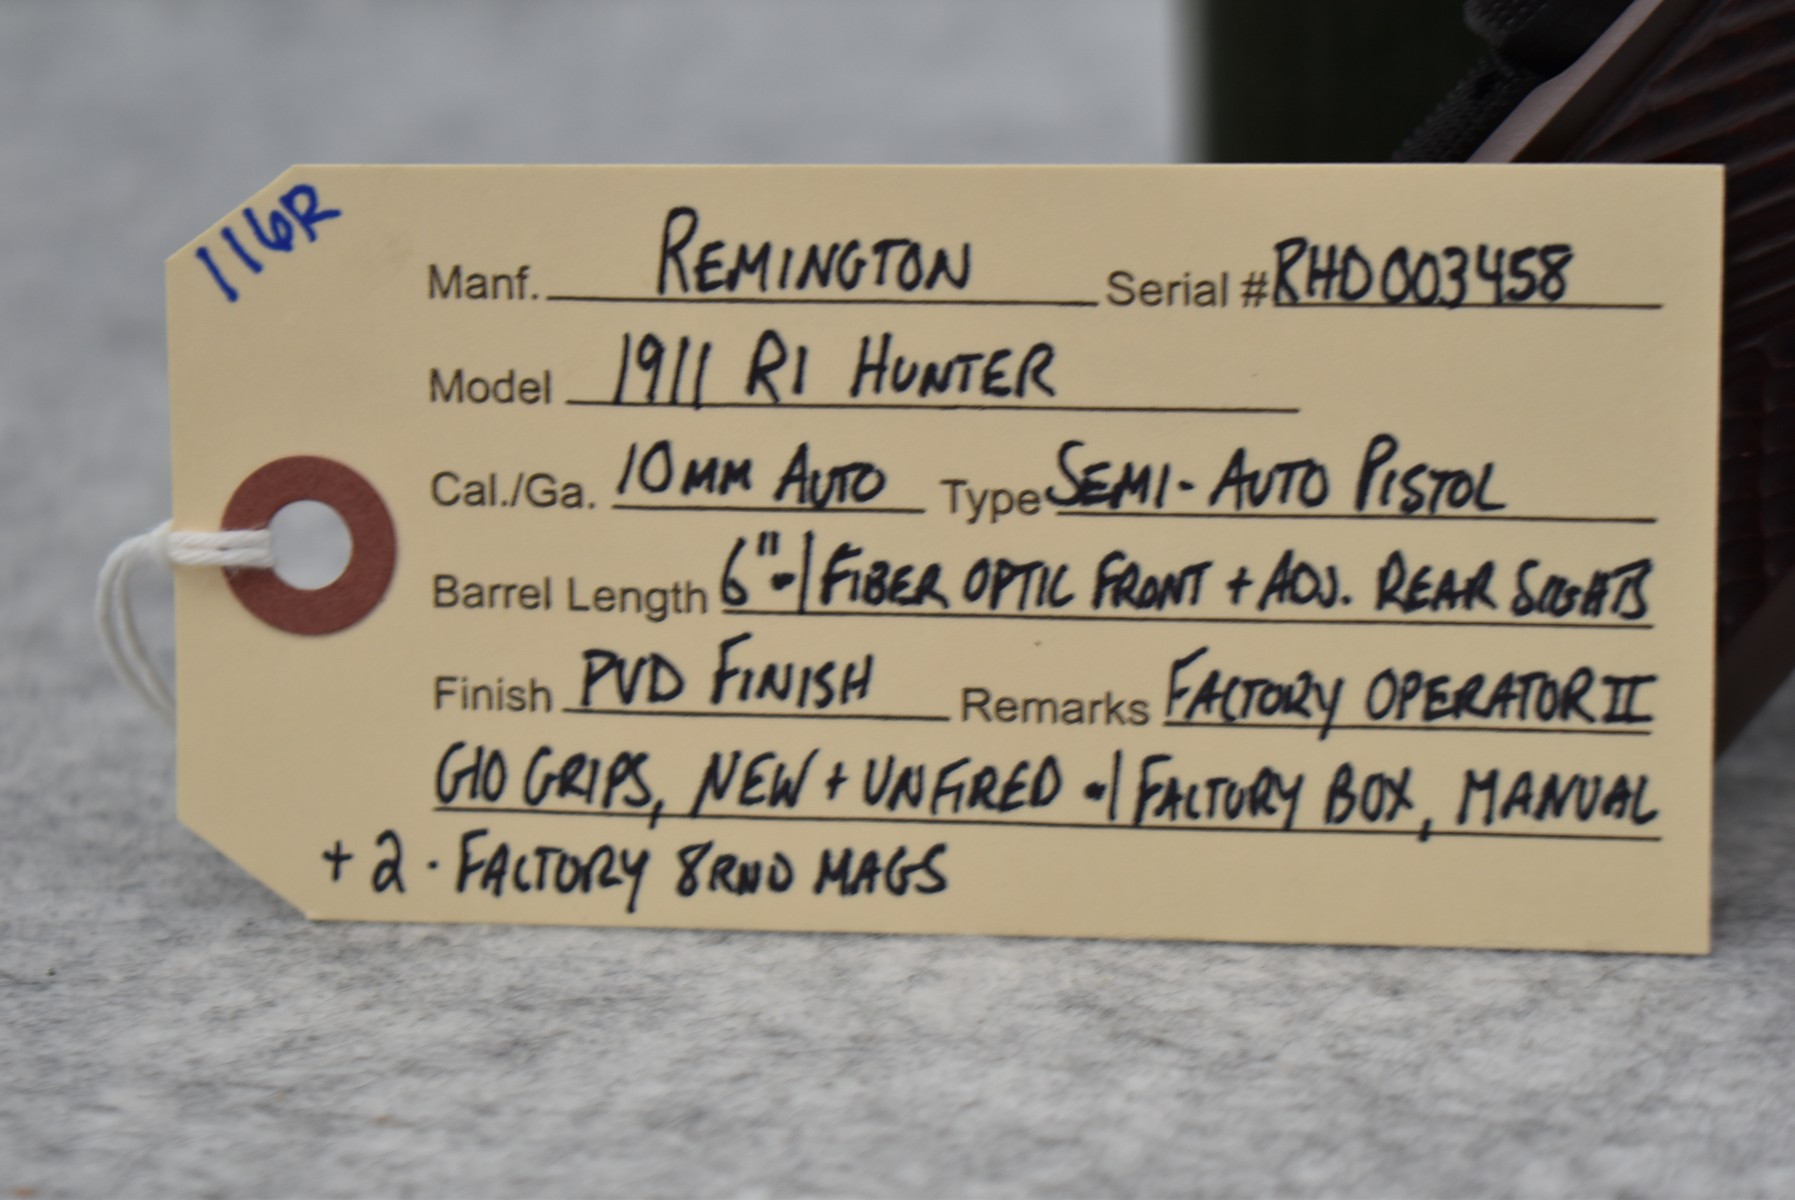 116R
Manf. REMINGTON Serial # RHD003458
Model 1911 R1 HUNTER
Cal./Ga. 10MM AUTO Type SEMI-AUTO PISTOL
Barrel Length 6" w/ FIBER OPTIC FRONT + ADJ. REAR SIGHTS
Finish PVD FINISH Remarks FACTORY OPERATOR II
G10 GRIPS, NEW + UNFIRED w/ FACTORY BOX, MANUAL
+ 2 - FACTORY 8RND MAGS